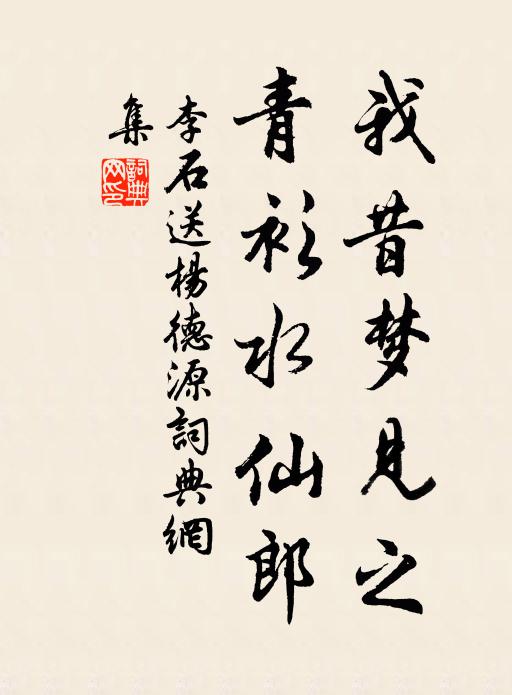 我昔梦见之
青衫水仙郎
李石送楊德源詞典網
集
詞典网印